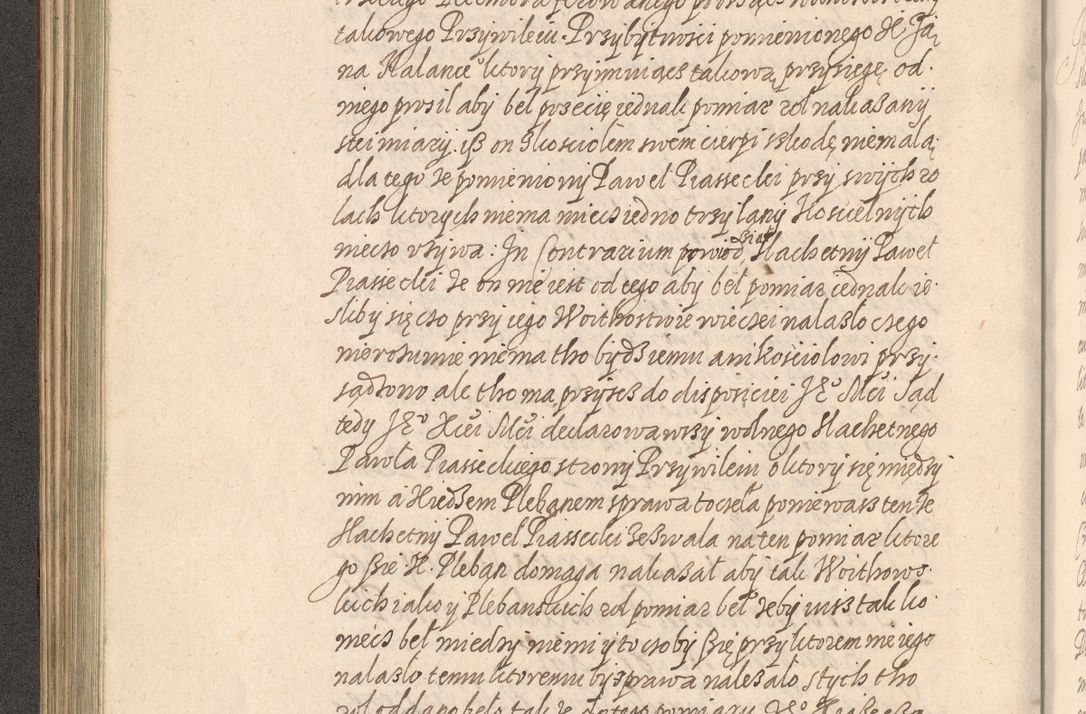 takowego Przywileiu. Przybytnosci pomienionego X. Ja
na Kalance ktory przyimuiącs takową przysięgę od
niego prosił aby beł poscię iednak pomiar rol nakazany
stei miary. isz on zkosciołem swem cierpi szkodę niemałą
dla tego że pomieniony Paweł Piassecki przy swych ro
lach ktorych niema miecs iedno trzy łany Koscielnych
niecso vżywa: In Contrarium powiedział Slachetny Paweł
Piassecki że on nie iest od tego aby beł pomiar iednak ie
sliby sięcso przy iego Woithostwie wiecsei nalazło csego
nierozumie niema tho bydz iemu ani kosciołowi przy
sądzono ale tho ma przyisc do disposiciei JEº Mci Sąd
tedy JEº Xcei Mci declarowawszy wolnego Slachetnego
Pawła Piasseckiego strony Przywileiu o ktory się między
nim a Xiedzem Plebanem sprawa tocseła poniewasz tenże
Slachetny Paweł Piassecki zezwala na ten pomiar ktore
go sie X. Pleban domaga nakazał aby tak Woithows
kich iako y Plebanskich rol pomiar beł żeby iusz tak ko
niecs beł miedzy niemi y to coby się przy ktorem nie iego
nalazło temu ktoremu by sprawa należało stych tho